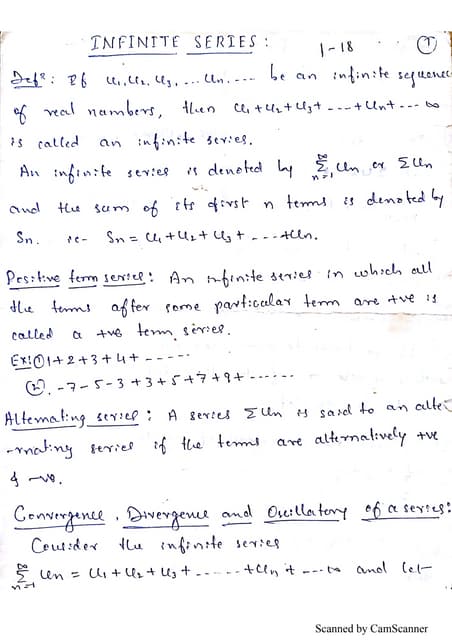 INFINITE SERIES :
1-18
1
Defn: If u1, u2, u3, ... un, ---- be an infinite sequence
of real numbers, then u1+u2+u3+ ---+un+--- ∞
is called an infinite series.
An infinite series is denoted by ∞Σn=1 un or Σun
and the sum of its first n terms is denoted by
Sn. ie- Sn = u1+u2+u3+ ----+un.
Positive term series: An infinite series in which all
the terms after some particular term are +ve is
called a +ve term series.
Ex:① 1+2+3+4+-----
②. -7-5-3+3+5+7+9+------
Alternating series : A series Σun is said to an alte-
-rnating series if the terms are alternatively +ve
& -ve.
Convergence, Divergence and Oscillatory of a series:
Consider the infinite series
∞Σn=1 un = u1+u2+u3+------+un+---∞ and let-
Scanned by CamScanner